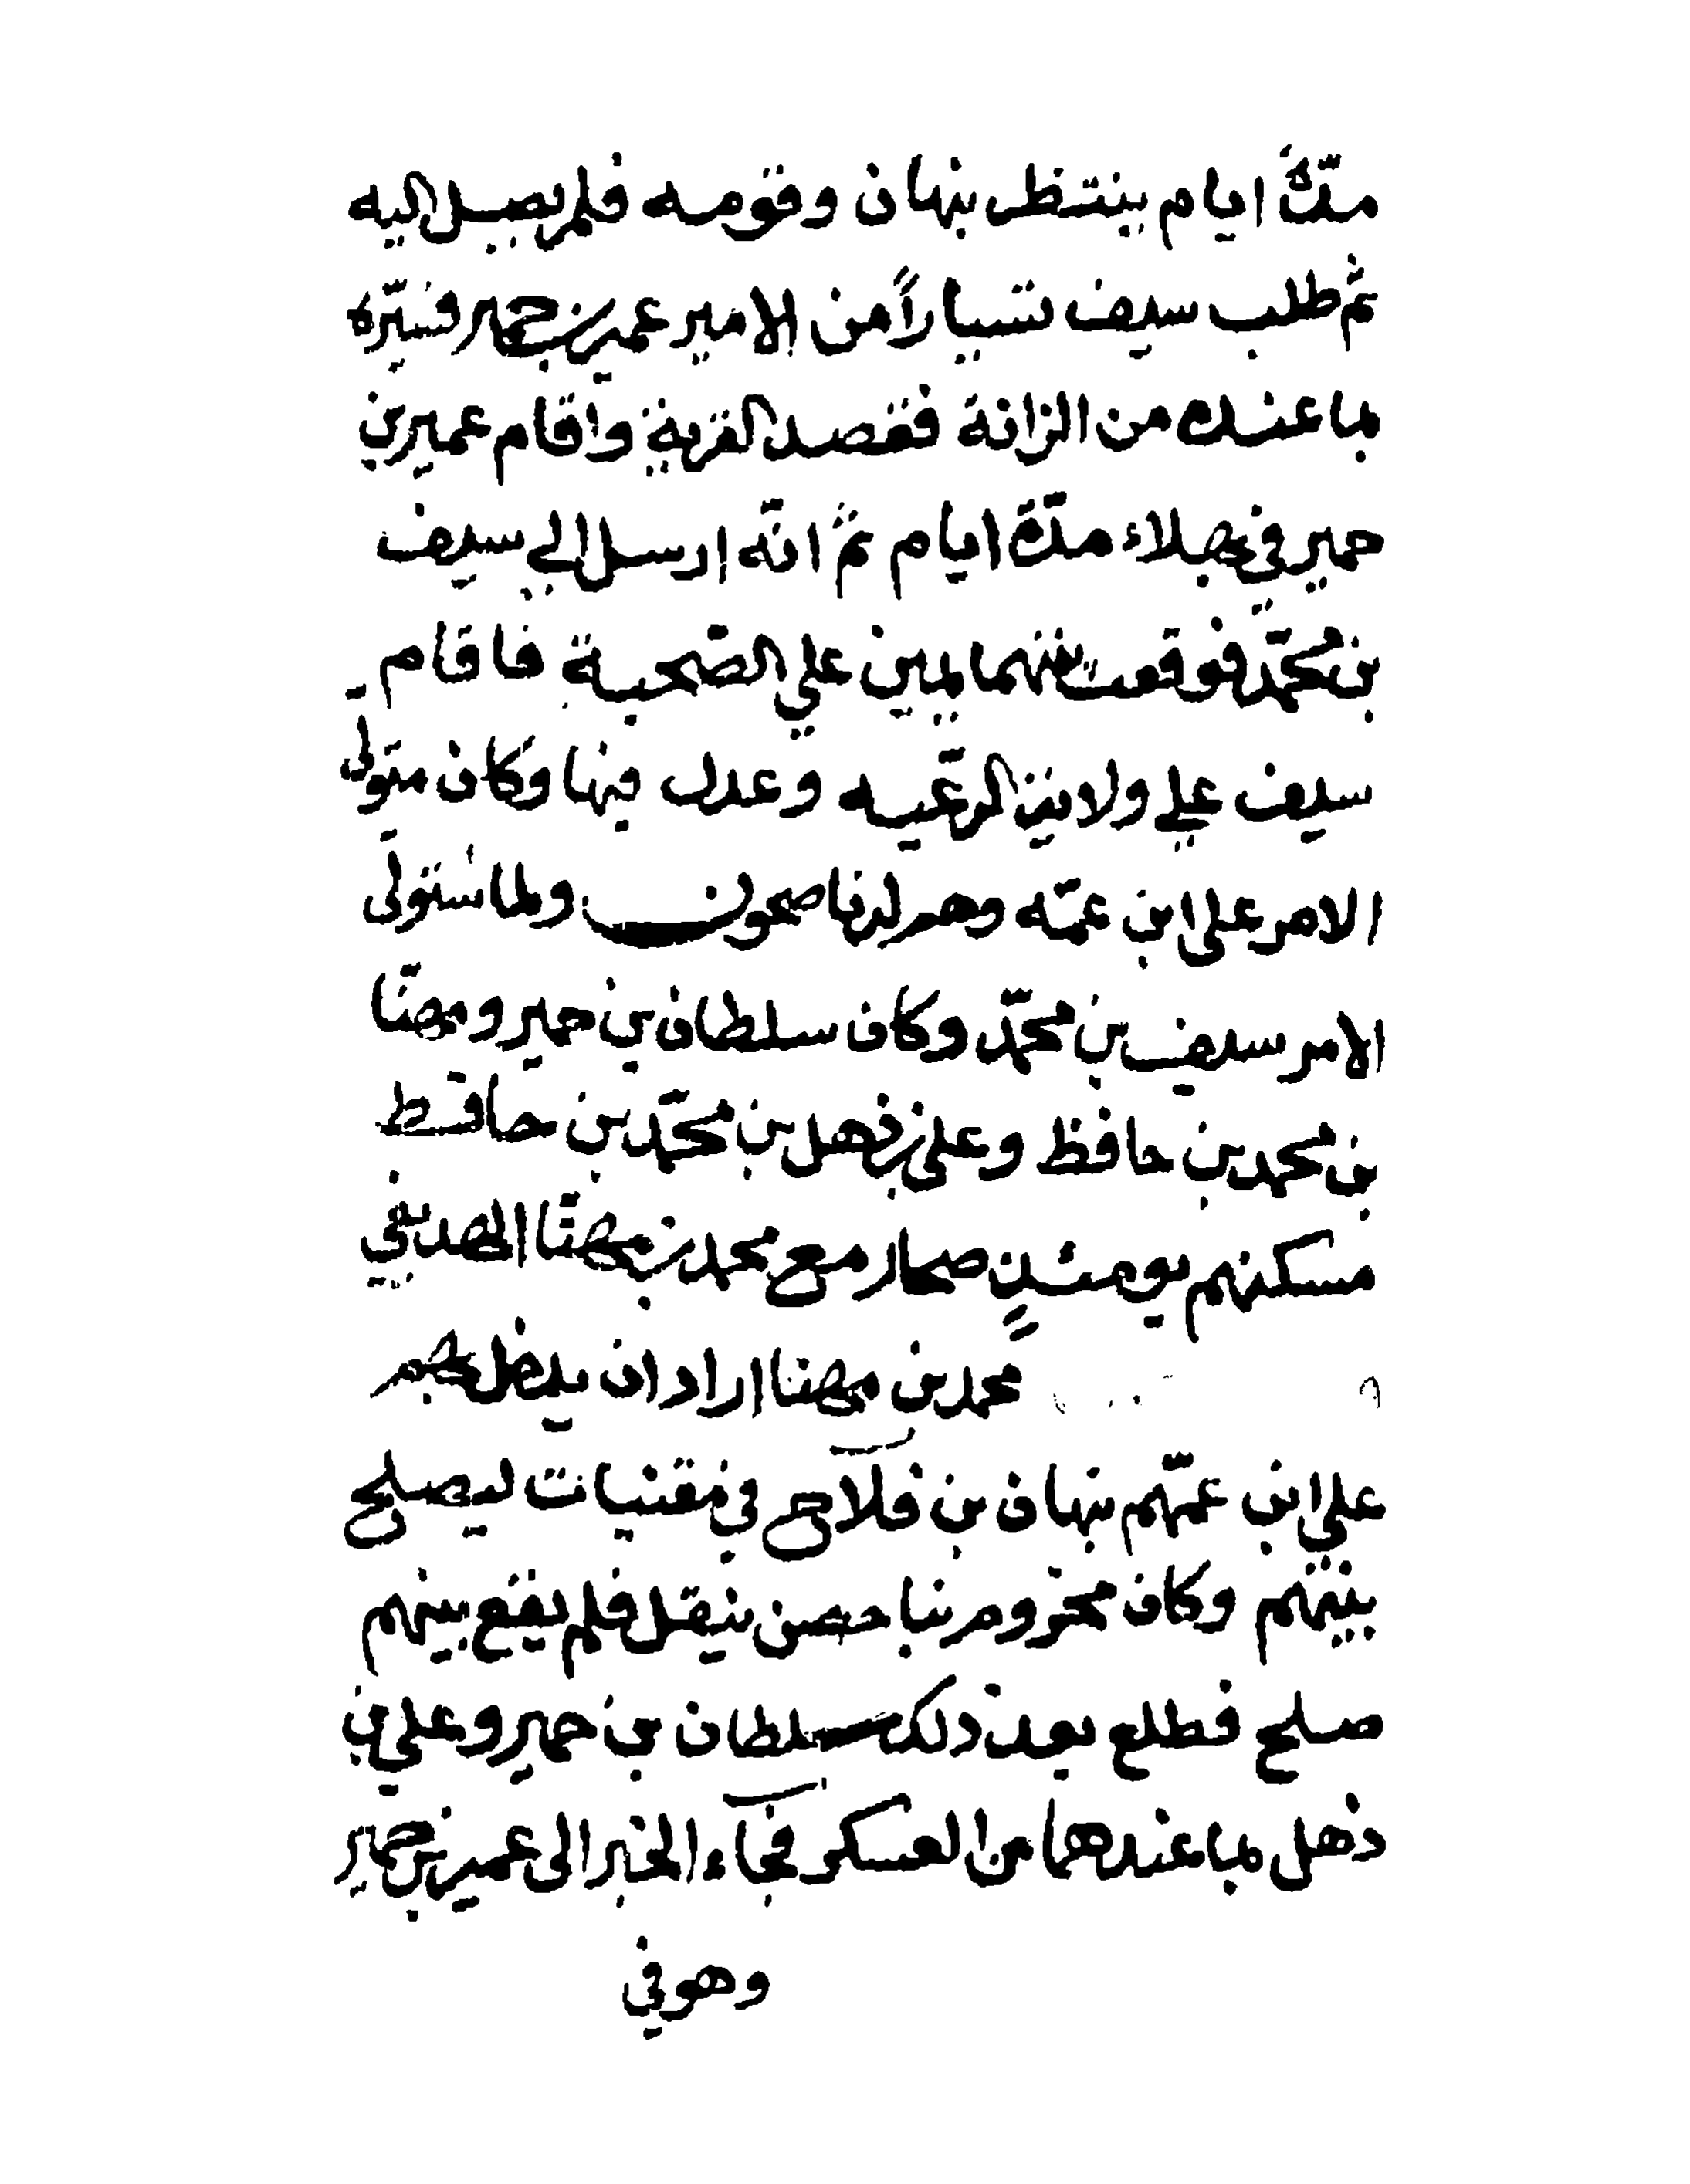 مدّة ايام ينتظر بنهان وقومه فلم يصل اليه
ثم طلب سيف تسياراً من الامير عمير بن حمير فسيّره
بما عنده من الزانة فقصد القرية واقام عمير بن
حمير في بهلاء مدّة ايام ثمّ انّه ارسل الي سيف
بن محمّد فوقعت بينهما يمين علي الصّحبة فاقام
سيف علي ولايتي الرعّيه وعدل فيها وكان متولّي
الامر علي ابن عمّه وهم له ناصحون ولما استولي
الامر سيف بن محمّد وكان سلطان بن حمير ومهنّا
بن محمد بن حافظ وعلي بن ذهل بن محمّد بن حافظ
مسكنهم يومئذٍ صحار مع محمد بن مهنّا الهديفي
محمد بن مهنا اراد ان يدخل بهم
علي ابن عمّهم بنهان بن فلاح في مقنيات ليصلح
بينهم وكان مخزوم بنا حصن ينقل فلم يقع بينهم
صلح فطلع بعد ذلك سلطان بن حمير وعلي بن
ذهل بما عندهما من العسكر فجاء الخبر الى عمير بن حمير
وهو في